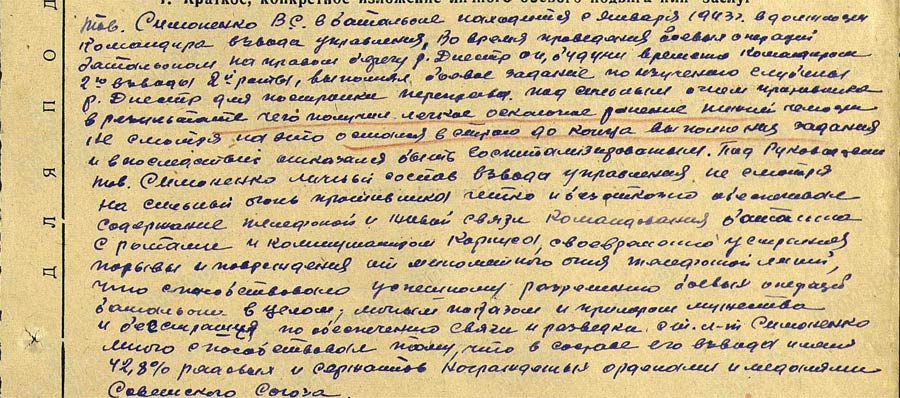 1. Краткое, конкретное изложение личного боевого подвига или заслуг
Тов. Симоненко В.С. в батальоне находится с января 1943 г. в должности
командира взвода управления. Во время проведения боевых операций
батальоном на правом берегу р. Днестр он, будучи временно командиром
2го взвода 2й роты, выполнял боевое задание по изучению глубины
р. Днестр для постройки переправы. под сильным огнем противника
в результате чего получил легкое осколочное ранение нижней челюсти
Не смотря на это остался в строю до конца выполнения задания
и впоследствии отказался быть госпитализированным. Под руководством
тов. Симоненко личный состав взвода управления не смотря
на сильный огонь противника четко и безотказно обеспечивал
содержание телефонной и живой связи командования батальона
с ротами и коммутатором корпуса, своевременно устраняя
порывы и повреждения от минометного огня телефонной линий,
что способствовало успешному разрешению боевых операций
батальона в целом, личным показом и примером мужества
и бесстрашия по обеспечению связи и разведки ст. л-т Симоненко
много способствовал тому, что в составе его взвода имеет
42,8% рядовых и сержантов награжденных орденами и медалями
Советского Союза.
Д Л Я П О Д